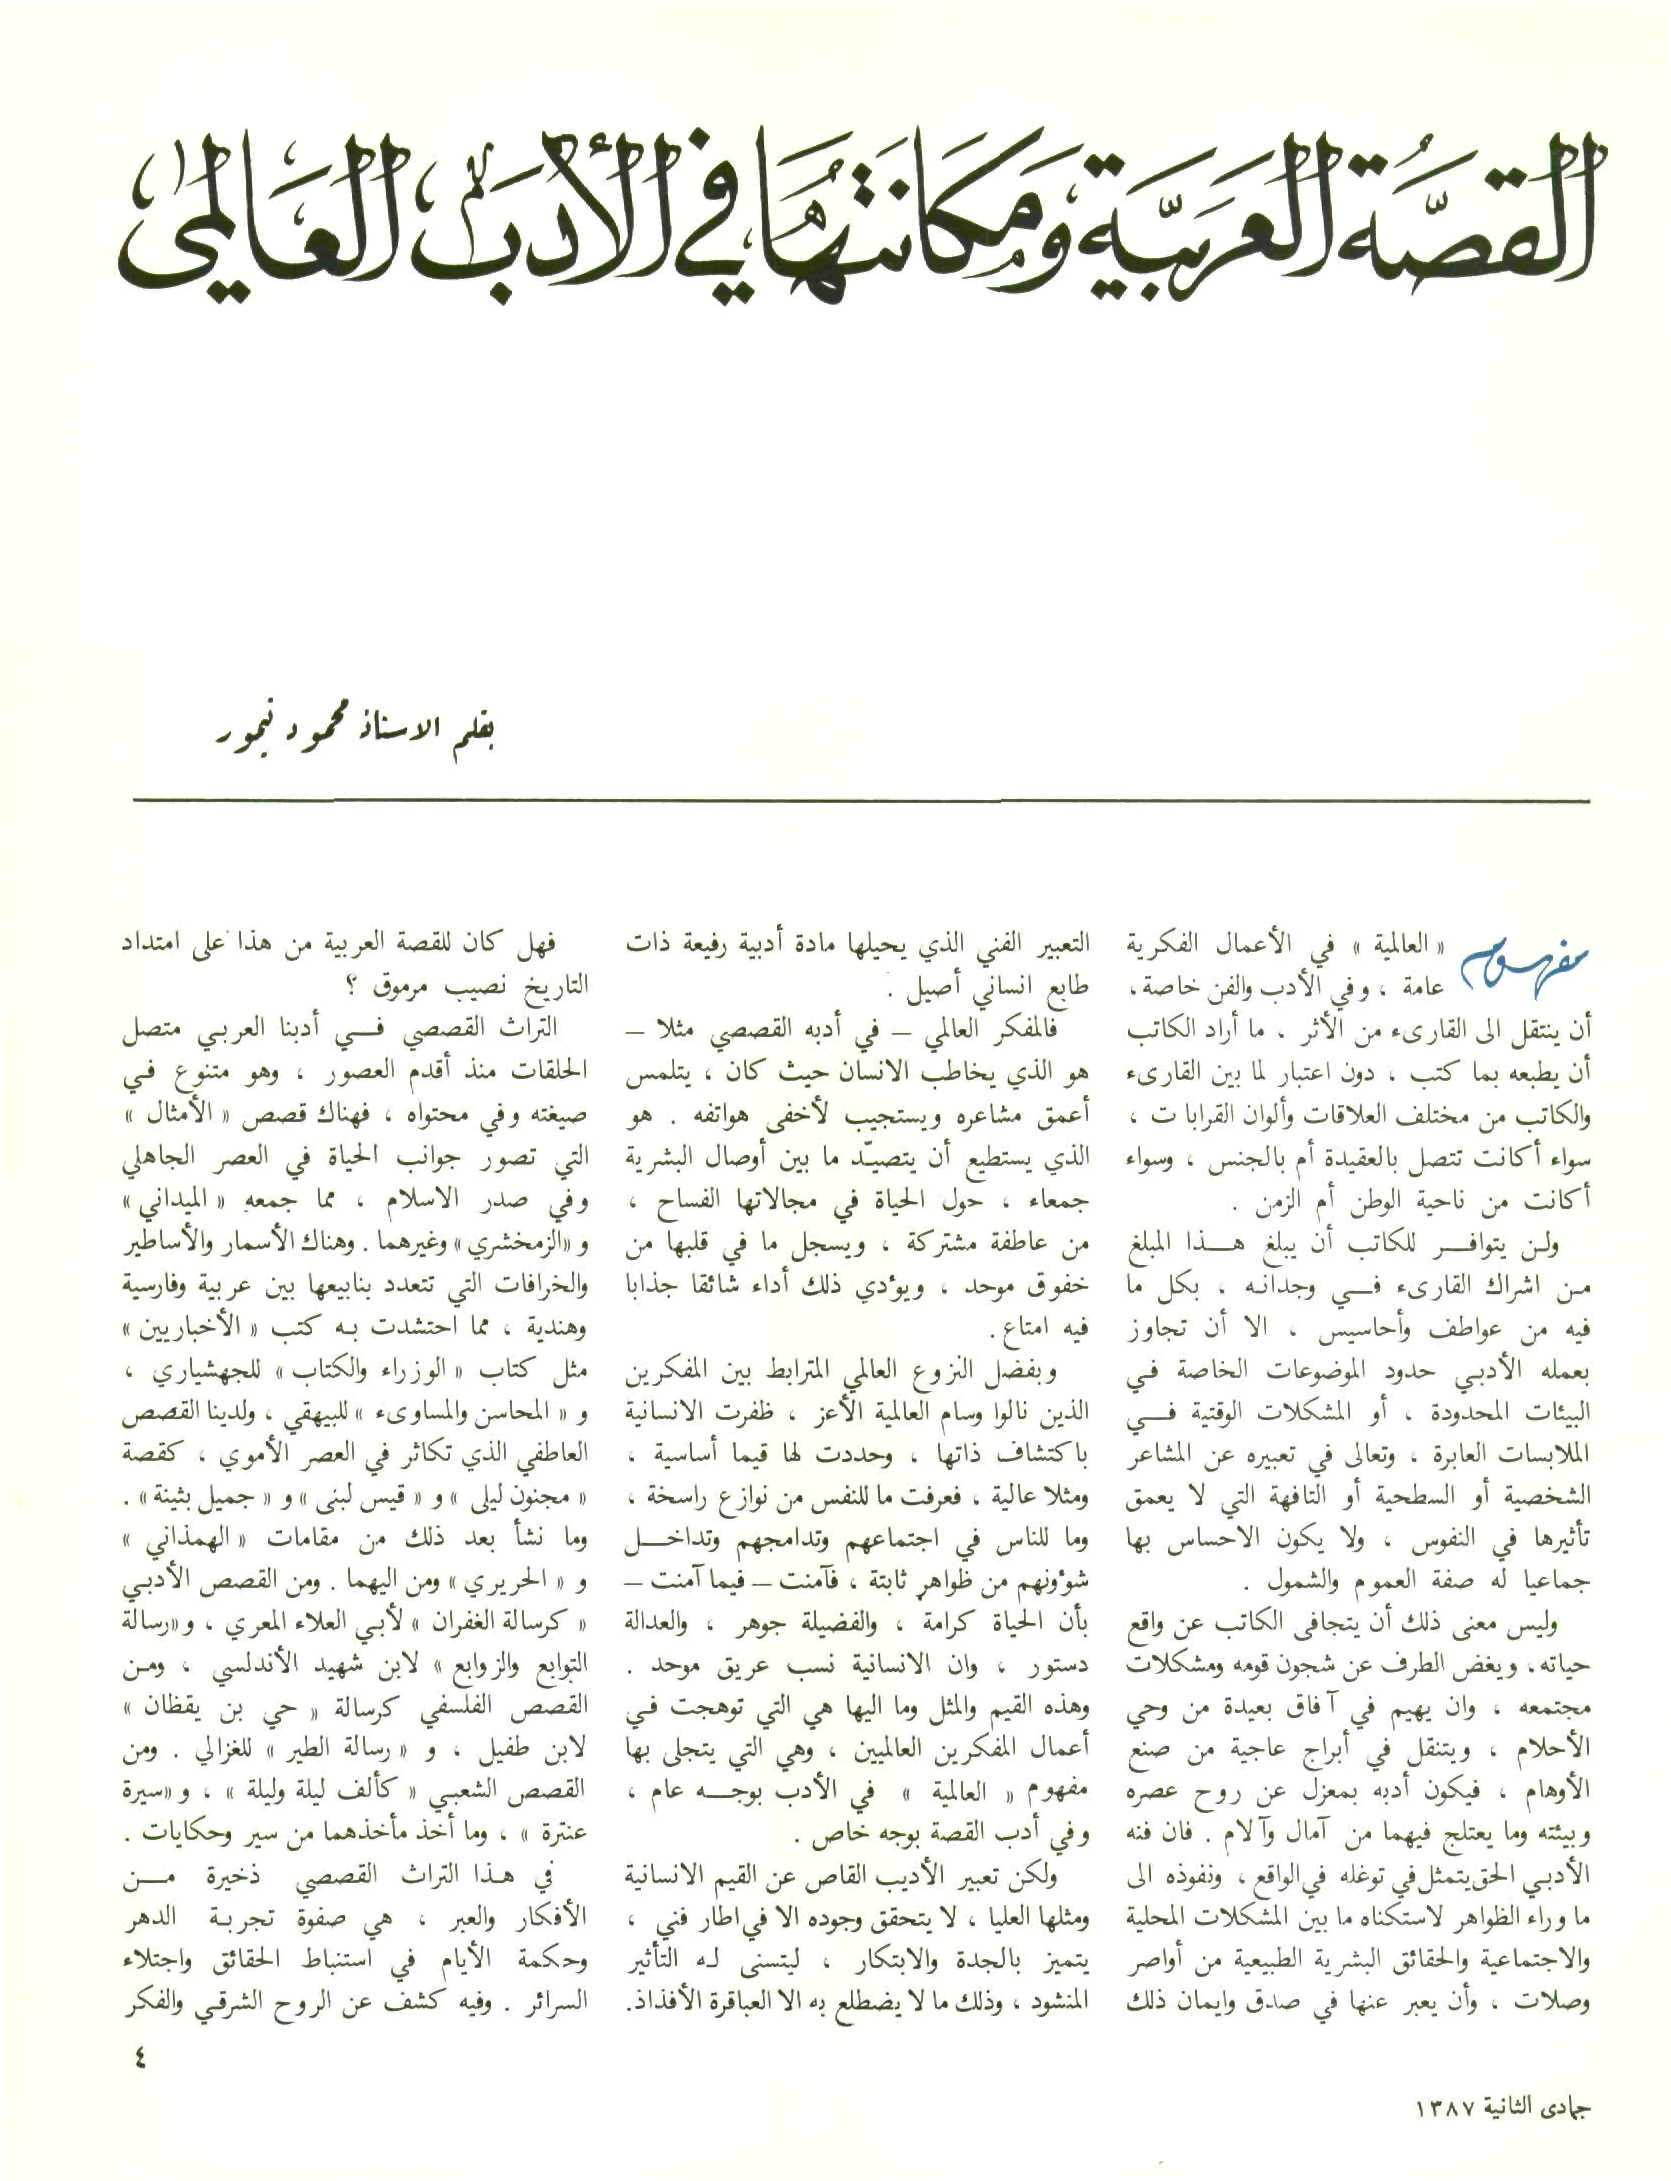 القصة العربية ومكانتها في الأدب العالمي
بقلم الاستاذ محمود تيمور
مفهوم « العالمية » في الأعمال الفكرية
عامة ، وفي الأدب والفن خاصة ،
أن ينتقل الى القارىء من الأثر ، ما أراد الكاتب
أن يطبعه بما كتب ، دون اعتبار لما بين القارىء
والكاتب من مختلف العلاقات وألوان القرابات ،
سواء أكانت تتصل بالعقيدة أم بالجنس ، وسواء
أكانت من ناحية الوطن أم الزمن .
ولن يتوافر للكاتب أن يبلغ هذا المبلغ
من اشراك القارىء في وجدانه ، بكل ما
فيه من عواطف وأحاسيس ، الا أن تجاوز
بعمله الأدبي حدود الموضوعات الخاصة في
البيئات المحدودة ، أو المشكلات الوقتية في
الملابسات العابرة ، وتعالى في تعبيره عن المشاعر
الشخصية أو السطحية أو التافهة التي لا يعمق
تأثيرها في النفوس ، ولا يكون الاحساس بها
جماعيا له صفة العموم والشمول .
وليس معنى ذلك أن يتجافى الكاتب عن واقع
حياته، ويغض الطرف عن شجون قومه ومشكلات
مجتمعه ، وان يهيم في آفاق بعيدة من وحي
الأحلام ، ويتنقل في أبراج عاجية من صنع
الأوهام ، فيكون أدبه بمعزل عن روح عصره
وبيئته وما يعتلج فيهما من آمال وآلام . فان فنه
الأدبي الحق يتمثل في توغله في الواقع ، ونفوذه الى
ما وراء الظواهر لاستكناه ما بين المشكلات المحلية
والاجتماعية والحقائق البشرية الطبيعية من أواصر
وصلات ، وأن يعبر عنها في صدق وايمان ذلك
التعبير الفني الذي يحيلها مادة أدبية رفيعة ذات
طابع انساني أصيل .
فالمفكر العالمي – في أدبه القصصي مثلا –
هو الذي يخاطب الانسان حيث كان ، يتلمس
أعمق مشاعره ويستجيب لأخفى هواتفه . هو
الذي يستطيع أن يتصيّد ما بين أوصال البشرية
جمعاء ، حول الحياة في مجالاتها الفساح ،
من عاطفة مشتركة ، ويسجل ما في قلبها من
خفوق موحد ، ويؤدي ذلك أداء شائقا جذابا
فيه امتاع.
وبفضل النزوع العالمي المترابط بين المفكرين
الذين نالوا وسام العالمية الأعز ، ظفرت الانسانية
باكتشاف ذاتها ، وحددت لها قيما أساسية ،
ومثلا عالية ، فعرفت ما للنفس من نوازع راسخة ،
وما للناس في اجتماعهم وتدامجهم وتداخل
شؤونهم من ظواهر ثابتة ، فآمنت – فيما آمنت –
بأن الحياة كرامة ، والفضيلة جوهر ، والعدالة
دستور ، وان الانسانية نسب عريق موحد .
وهذه القيم والمثل وما اليها هي التي توهجت في
أعمال المفكرين العالميين ، وهي التي يتجلى بها
مفهوم « العالمية » في الأدب بوجه عام ،
وفي أدب القصة بوجه خاص .
ولكن تعبير الأديب القاص عن القيم الانسانية
ومثلها العليا ، لا يتحقق وجوده الا في اطار فني ،
يتميز بالجدة والابتكار ، ليتسنى له التأثير
المنشود ، وذلك ما لا يضطلع به الا العباقرة الأفذاذ.
فهل كان للقصة العربية من هذا على امتداد
التاريخ نصيب مرموق ؟
التراث القصصي في أدبنا العربي متصل
الحلقات منذ أقدم العصور ، وهو متنوع في
صيغته وفي محتواه ، فهناك قصص « الأمثال »
التي تصور جوانب الحياة في العصر الجاهلي
وفي صدر الاسلام ، مما جمعه « الميداني »
و «الزمخشري » وغيرهما . وهناك الأسمار والأساطير
والخرافات التي تتعدد بنابيعها بين عربية وفارسية
وهندية ، مما احتشدت به كتب « الأخباريين »
مثل كتاب « الوزراء والكتاب » للجهشياري ،
و « المحاسن والمساوىء » للبيهقي ، ولدينا القصص
العاطفي الذي تكاثر في العصر الأموي ، كقصة
« مجنون ليلى » و « قيس لبنى » و « جميل بثينة» .
وما نشأ بعد ذلك من مقامات « الهمذاني »
و « الحريري » ومن اليهما . ومن القصص الأدبي
« كرسالة الغفران » لأبي العلاء المعري ، و«رسالة
التوابع والزوابع » لابن شهيد الأندلسي ، ومن
القصص الفلسفي كرسالة « حي بن يقظان »
لابن طفيل ، و « رسالة الطير » للغزالي . ومن
القصص الشعبي « كألف ليلة وليلة » ، و«سيرة
عنترة » ، وما أخذ مأخذهما من سير وحكايات .
في هذا التراث القصصي ذخيرة من
الأفكار والعبر ، هي صفوة تجربة الدهر
وحكمة الأيام في استنباط الحقائق واجتلاء
السرائر . وفيه كشف عن الروح الشرقي والفكر
٤
جمادى الثانية ١٣٨٧